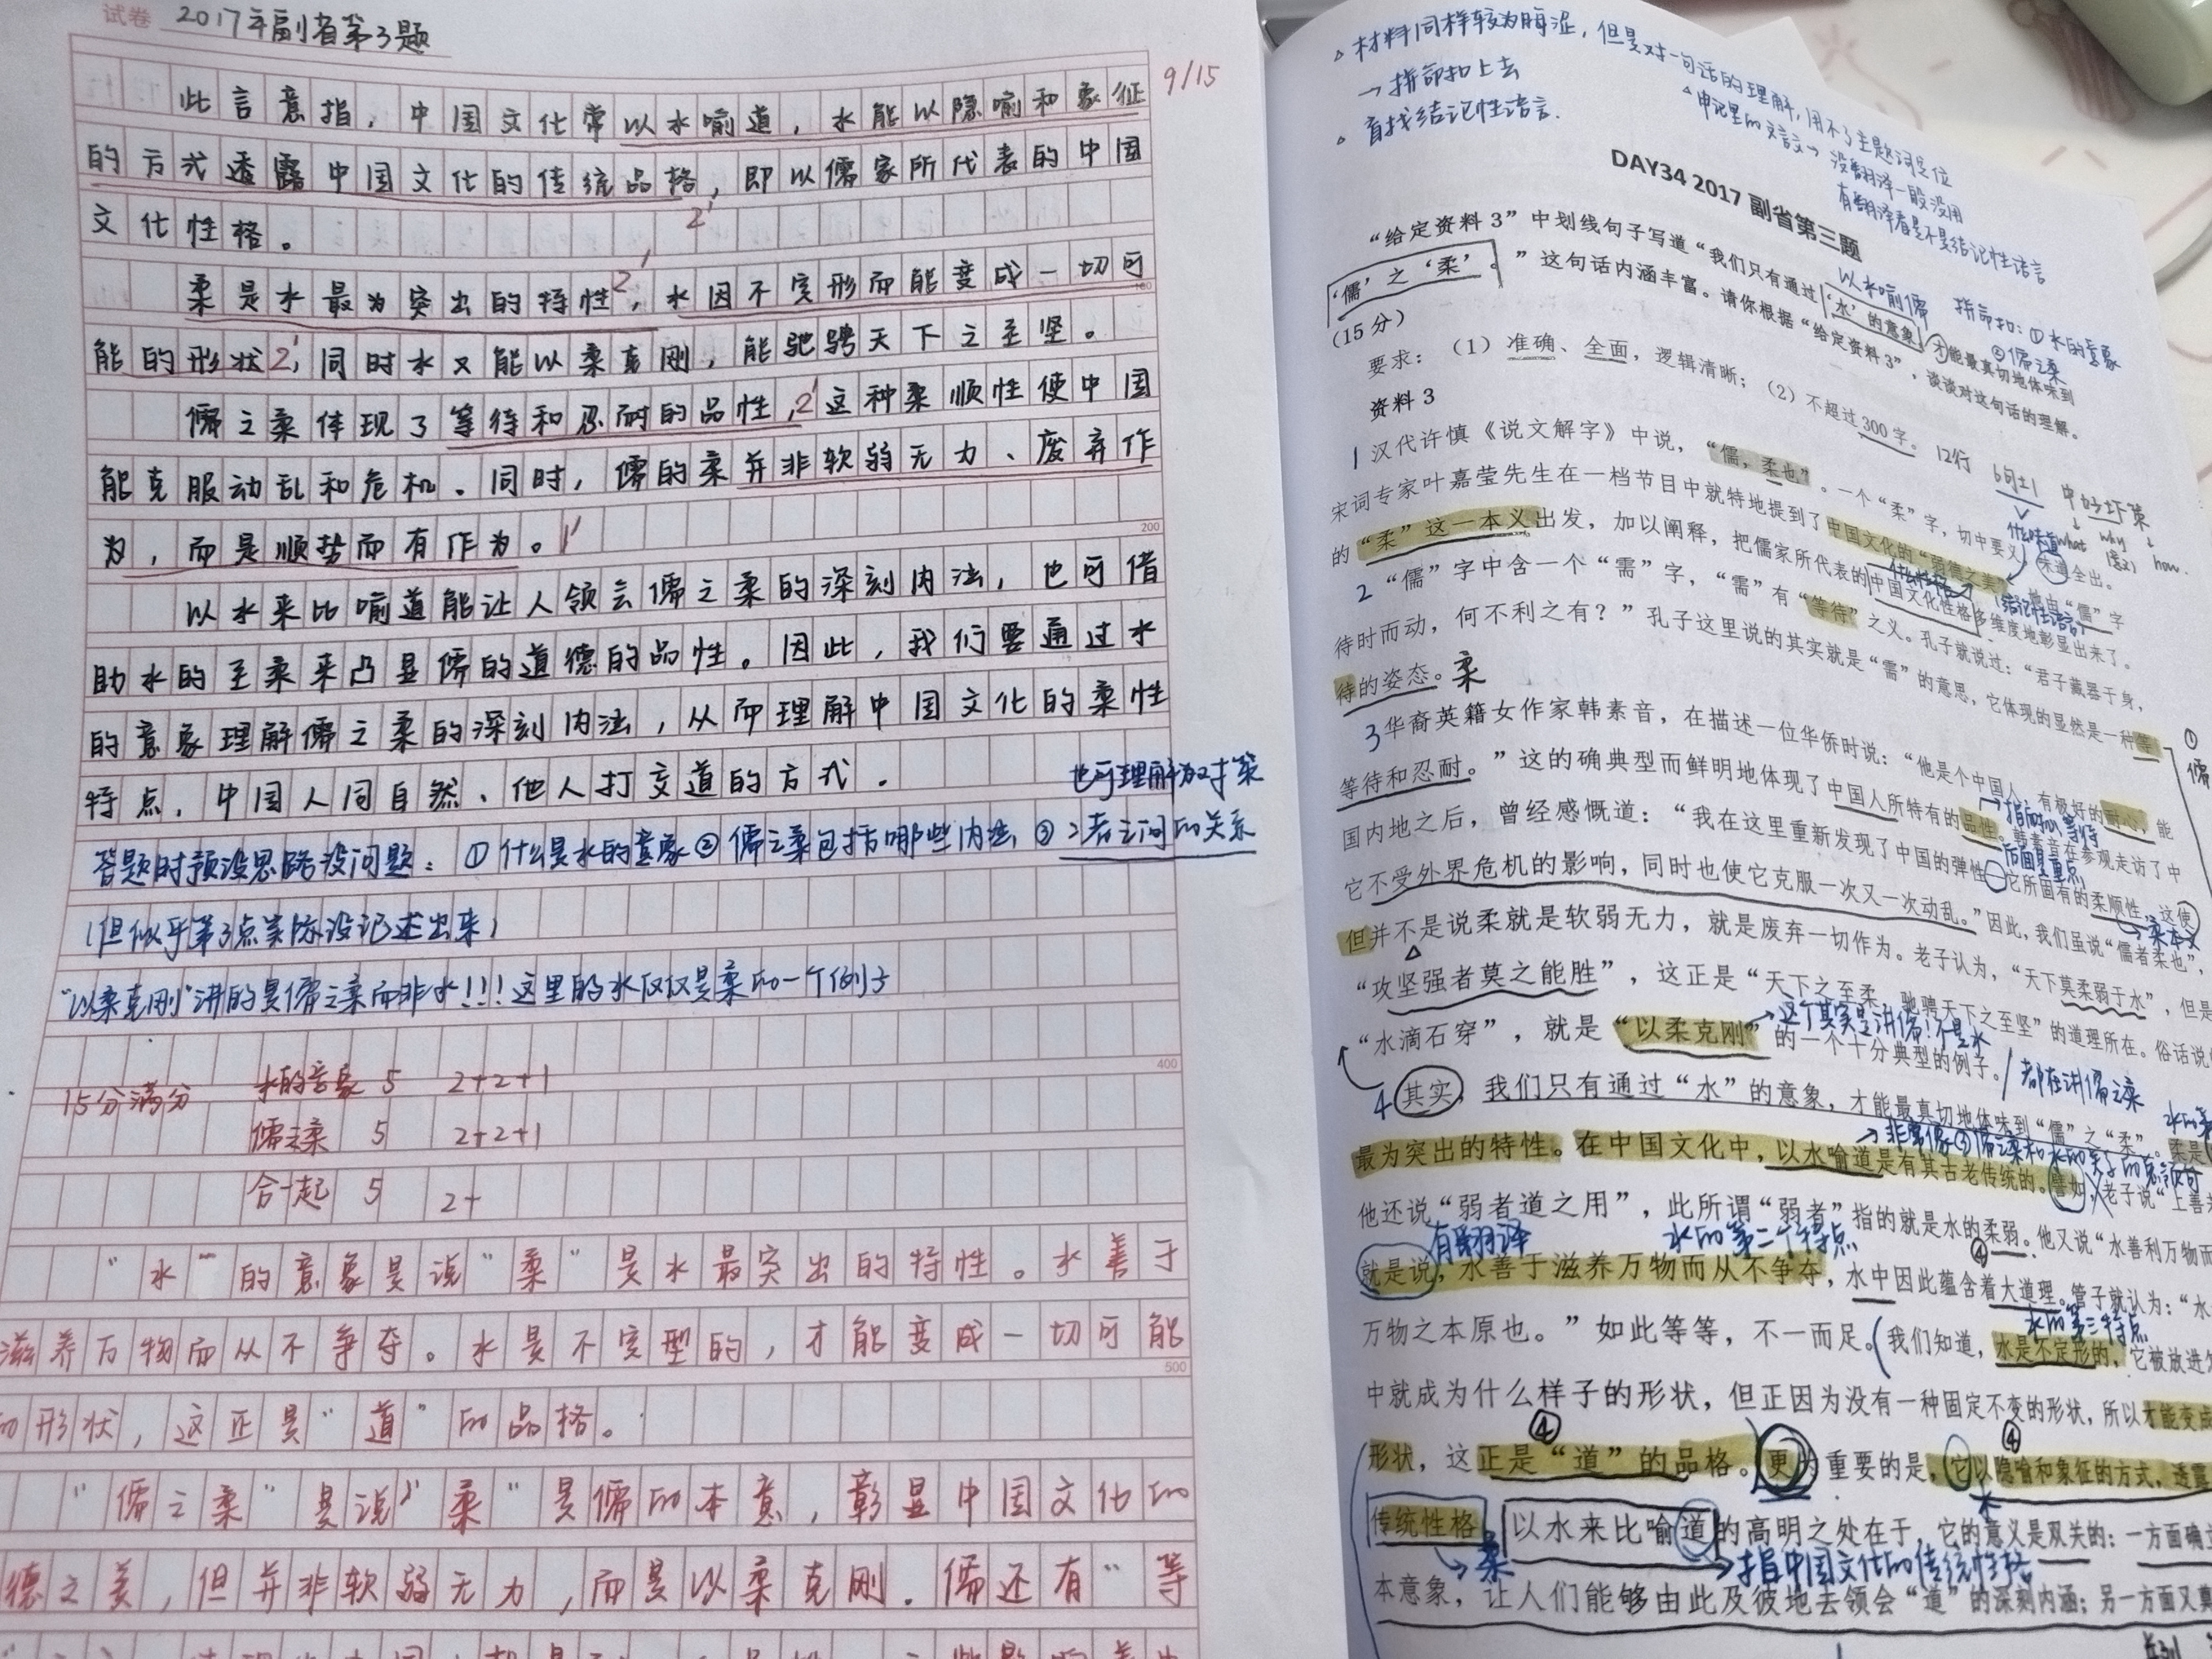 试卷 2017年副省第3题
9/15
此言意指，中国文化常以水喻道，水能以隐喻和象征
的方式透露中国文化的传统品格，即以儒家所代表的中国
2'
文化性格。
柔是水最为突出的特性2'，水因不定形而能变成一切可
能的形状2'，同时水又能以柔克刚，能驰骋天下之至坚。
儒之柔体现了等待和忍耐的品性，2'这种柔顺性使中国
能克服动乱和危机。同时，儒的柔并非软弱无力、废弃作
为，而是顺势而有作为。1'
200
以水来比喻道能让人领会儒之柔的深刻内涵，也可借
助水的至柔来凸显儒的道德的品性。因此，我们要通过水
的意象理解儒之柔的深刻内涵，从而理解中国文化的柔性
特点，中国人同自然、他人打交道的方式。
也可理解为对策
答题时预设思路没问题：①什么是水的意象②儒之柔包括哪些内涵③二者之间的关系
（但似乎第3点实际没记述出来）
"以柔克刚"讲的是儒之柔而非水！！！这里的水仅仅是柔的一个例子
400
15分满分 水的意象 5 2+2+1
儒之柔 5 2+2+1
合一起 5 2+
"水"的意象是说"柔"是水最突出的特性。水善于
滋养万物而从不争夺。水是不定型的，才能变成一切可能
500
的形状，这正是"道"的品格。
"儒之柔"是说"柔"是儒的本意，彰显中国文化的
德之美，但并非软弱无力，而是以柔克刚。儒还有"等
△材料同样较为晦涩，但是对一句话的理解，用不了主题词定位
→拼命扣上去
△直找结记性语言.
△申记里的文言文→没翻译一般没用
有翻译看是不是结记性语言
DAY34 2017 副省第三题
"给定资料3"中划线句子写道"我们只有通过'水'的意象，才能最真切地体味到
'儒'之'柔'。"这句话内涵丰富。请你根据"给定资料3"，谈谈对这句话的理解。
（15分）
以水喻儒
拼命扣：①水的意象
②儒之柔
要求：（1）准确、全面，逻辑清晰；（2）不超过300字。
12行 6句±1
what why how
资料3
1 汉代许慎《说文解字》中说，"儒，柔也"。一个"柔"字，切中要义，味道全出。
宋词专家叶嘉莹先生在一档节目中就特地提到了中国文化的"弱德之美"，她由"儒"字
的"柔"这一本义出发，加以阐释，把儒家所代表的中国文化性格多维度地彰显出来了。
2 "儒"字中含一个"需"字，"需"有"等待"之义。孔子就说过："君子藏器于身，
待时而动，何不利之有？"孔子这里说的其实就是"需"的意思，它体现的显然是一种等
待的姿态。柔
3 华裔英籍女作家韩素音，在描述一位华侨时说："他是个中国人，有极好的耐心，能
等待和忍耐。"这的确典型而鲜明地体现了中国人所特有的品性。韩素音在参观走访了中
国内地之后，曾经感慨道："我在这里重新发现了中国的弹性——它所固有的柔顺性，这使
它不受外界危机的影响，同时也使它克服一次又一次动乱。"因此，我们虽说"儒者柔也"，
但并不是说柔就是软弱无力，就是废弃一切作为。老子认为，"天下莫柔弱于水"，但是
"攻坚强者莫之能胜"，这正是"天下之至柔，驰骋天下之至坚"的道理所在。俗话说
"水滴石穿"，就是"以柔克刚"的一个十分典型的例子。
→这个其实是讲儒！不是水
都在讲儒之柔
4 其实，我们只有通过"水"的意象，才能最真切地体味到"儒"之"柔"。柔是
最为突出的特性。在中国文化中，以水喻道是有其古老传统的。譬如，老子说"上善
他还说"弱者道之用"，此所谓"弱者"指的就是水的柔弱。他又说"水善利万物而
有翻译
水的第二个特点
就是说，水善于滋养万物而从不争夺，水中因此蕴含着大道理。管子就认为："水
水的第三特点
万物之本原也。"如此等等，不一而足。我们知道，水是不定形的，它被放进
中就成为什么样子的形状，但正因为没有一种固定不变的形状，所以才能变成
④ ④
形状，这正是"道"的品格。更为重要的是，它以隐喻和象征的方式，透露
传统性格 以水来比喻道的高明之处在于，它的意义是双关的：一方面确立
→柔
→指中国文化的传统性格
本意象，让人们能够由此及彼地去领会"道"的深刻内涵；另一方面又